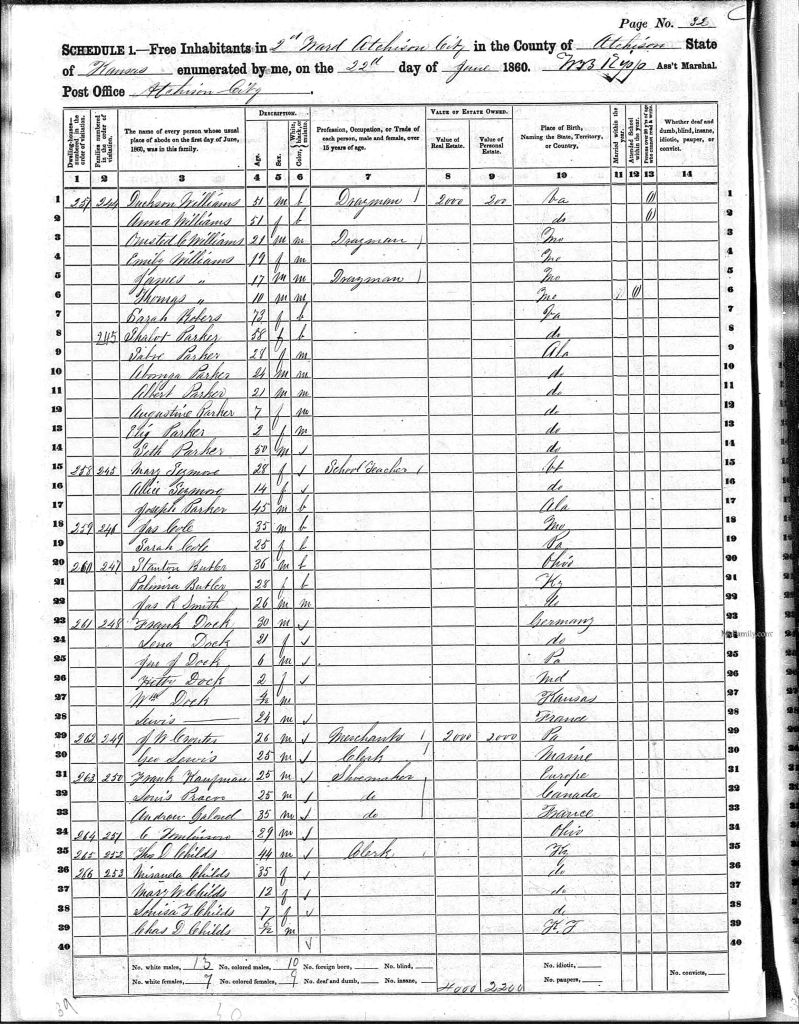 Page No. 32
SCHEDULE 1.—Free Inhabitants in 2d Ward Atchison City in the County of Atchison State
of Kansas enumerated by me, on the 22d day of June 1860. Ass't Marshal.
Post Office Atchison City.
Dwelling-houses—numbered in the order of visitation.
Families numbered in the order of visitation.
The name of every person whose usual place of abode on the first day of June, 1860, was in this family.
DESCRIPTION.
Age.
Sex.
Color, { White, black, or mulatto.
Profession, Occupation, or Trade of each person, male and female, over 15 years of age.
VALUE OF ESTATE OWNED.
Value of Real Estate.
Value of Personal Estate.
Place of Birth, Naming the State, Territory, or Country.
Married within the year.
Attended School within the year.
Whether deaf and dumb, blind, insane, idiotic, pauper, or convict.
1 2 3 4 5 6 7 8 9 10 11 12 13 14
1 257 244 Williams 51 m b Drayman / 2000 200 Va 1
2 Anna Williams 51 f b do 2
3 Williams 21 m m Drayman / Mo 3
4 Emily Williams 19 f m Mo 4
5 James " 17 m m Drayman / Mo 5
6 Thomas " 10 m m Mo 6
7 Sarah 73 f b Va 7
8 245 Parker 58 f b do 8
9 Parker 28 f m Ala 9
10 Parker 24 m m do 10
11 Albert Parker 21 m m do 11
12 Augustine Parker 7 f m do 12
13 Parker 2 f m do 13
14 Seth Parker 50 m do 14
15 258 245 Mary Seymore 28 f School Teacher / 15
16 Allice Seymore 14 f do 16
17 Joseph Parker 45 m b Ala 17
18 259 246 Jas Cole 35 m b Mo 18
19 Sarah Cole 25 f b Pa 19
20 260 247 Stanton Butler 36 m b Ohio 20
21 Palmira Butler 28 f b Ky 21
22 Jas R Smith 26 m m do 22
23 261 248 Frank Dock 30 m Germany 23
24 Lena Dock 21 f do 24
25 Dock 6 m Pa 25
26 Dock 2 f Md 26
27 Wm Dock m Kansas 27
28 Lewis — 24 m France 28
29 262 249 J W 26 m Merchants / 2000 2000 Pa 29
30 Geo Lewis 25 m Clerk / Maine 30
31 263 250 Frank Kaufman 25 m Shoemaker Europe 31
32 25 m do Canada 32
33 Andrew 35 m do France 33
34 264 251 C Tomlinson 29 m Ohio 34
35 265 252 Thos D Childs 44 m Clerk Ky 35
36 266 253 Miranda Childs 35 f do 36
37 Mary W Childs 12 f do 37
38 Louisa F Childs 7 f do 38
39 Chas D Childs m K.T 39
40 40
No. white males, 13 No. colored males, 10 No. foreign born, No. blind, No. idiotic, No. convicts,
No. white females, 7 No. colored females, 9 No. deaf and dumb, No. insane, 4000 2200 No. paupers,